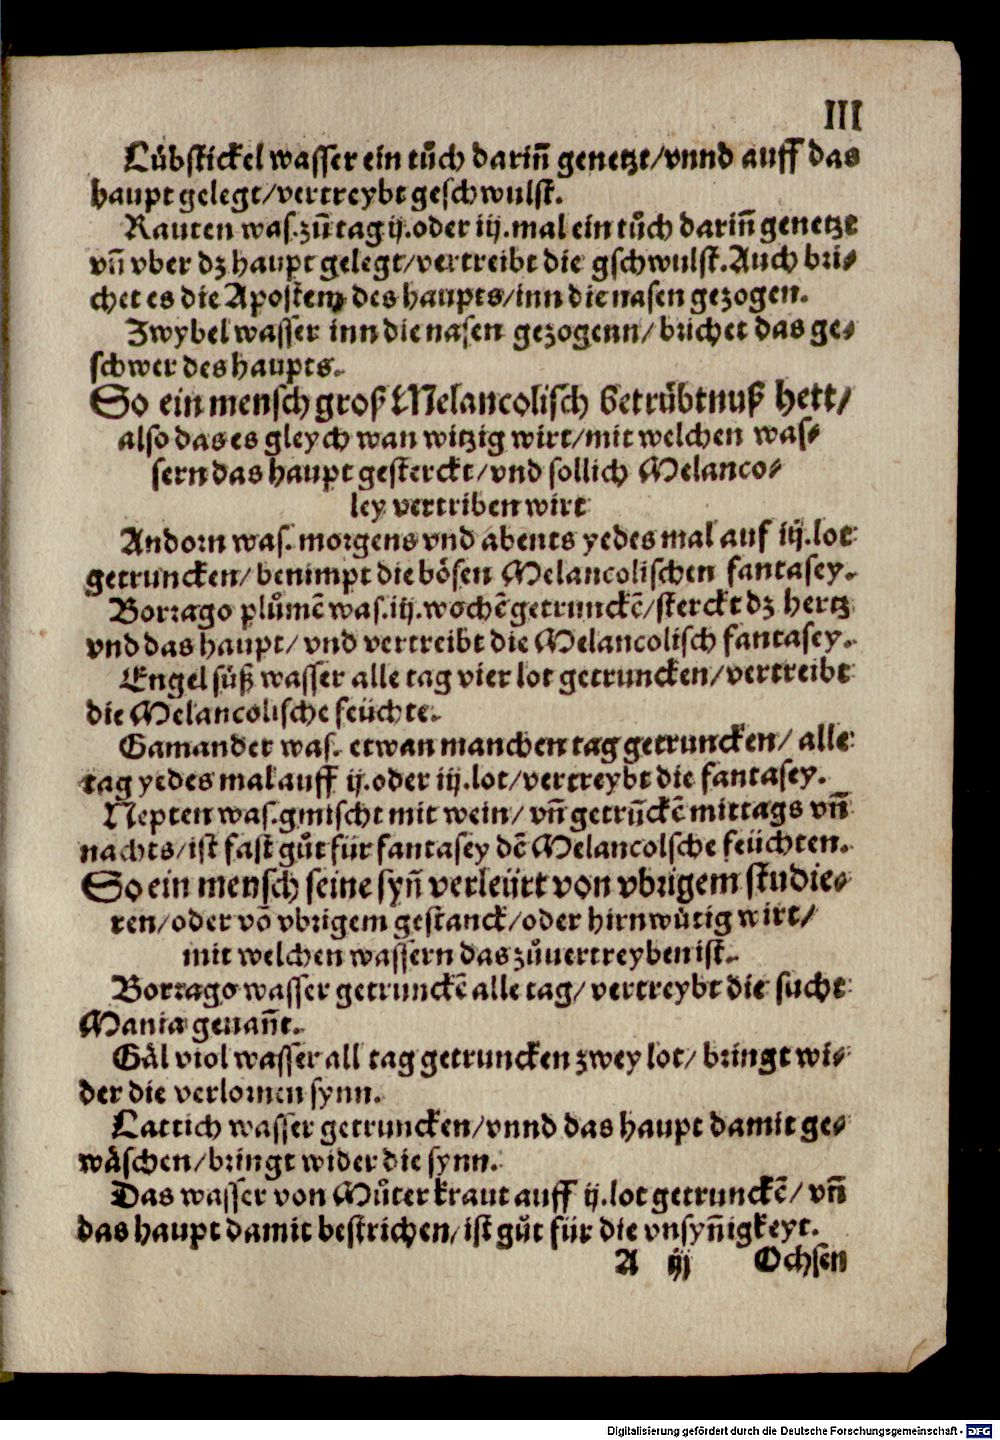 III
Lübstickel wasser ein tůch darin̄ genetzt/vnnd auff das
haupt gelegt/vertreybt geschwulst.
Rauten was.zů tag ij.oder iij.mal ein tůch darin̄ genetzt
vn̄ vber dz haupt gelegt/vertreibt die gschwulst.Auch bri⸗
chet es die Apostem des haupts/inn die nasen gezogen.
Zwybel wasser inn die nasen gezogenn/ brichet das ge⸗
schwer des haupts.
So ein mensch groß Melancolisch betrübtnuß hett/
also das es gleych wan witzig wirt/mit welchen was⸗
sern das haupt gesterckt/vnd sollich Melanco⸗
ley vertriben wirt
Andorn was. morgens vnd abents yedes mal auf iij.lot
getruncken/ benimpt die bösen Melancolischen fantasey.
Borrago plůmē was.iij.wochē getrunckē/sterckt dz hertz
vnd das haupt/ vnd vertreibt die Melancolisch fantasey.
Engel süß wasser alle tag vier lot getruncken/vertreibt
die Melancolische feüchte.
Gamander was. etwan manchen tag getruncken/ alle
tag yedes mal auff ij.oder iij.lot/vertreybt die fantasey.
Nepten was.gmischt mit wein/ vn̄ getrūckē mittags vn̄
nachts/ist fast gůt für fantasey dē Melancolsche feüchten.
So ein mensch seine syn̄ verleürt von vbrigem studie⸗
ren/oder vō vbrigem gestanck/oder hirnwütig wirt/
mit welchen wassern das zůuertreyben ist.
Borrago wasser getrunckē alle tag/ vertreybt die sucht
Mania genan̄t.
Gäl viol wasser all tag getruncken zwey lot/ bringt wi⸗
der die verlornen synn.
Lattich wasser getruncken/vnnd das haupt damit ge⸗
wäschen/bringt wider die synn.
Das wasser von Můterkraut auff ij.lot getrunckē/ vn̄
das haupt damit bestrichen/ist gůt für die vnsyn̄igkeyt.
A iij Ochsen
Digitalisierung gefördert durch die Deutsche Forschungsgemeinschaft - DFG